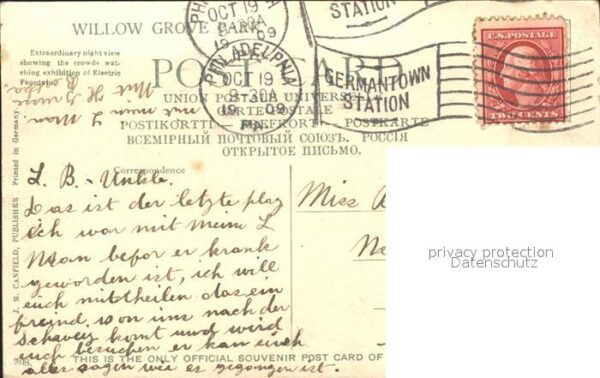 WILLOW GROVE PARK
Extraordinary night view
showing the crowds wat-
ching exhibition of Electric
Fountain.
POST CARD
UNION POSTALE UNIVERSELLE
CARTE POSTALE
POSTKORTTI BREFKORT POSTKARTE
ВСЕМІРНЫЙ ПОЧТОВЫЙ СОЮЗЪ. РОССІЯ
ОТКРЫТОЕ ПИСЬМО.
PHILADELPHIA
OCT 19
9-30A
1909
PA.
STATION
PHILADELPHIA
OCT 19
9-30A
1909
PA.
GERMANTOWN
STATION
U.S. POSTAGE
TWO CENTS
Correspondence
L. B. - Unkle.
Das ist der letzte plaz
ich war mit meim L
Man befor er krank
geworden ist, ich will
euch mittheilen das ein
freind, von uns nach der
schweiz komt und wird
euch besuchen er kan euch
alles sagen wie es gegangen ist.
Miss
privacy protection
Datenschutz
J. M. CANFIELD, PUBLISHER Printed in Germany.
208. THIS IS THE ONLY OFFICIAL SOUVENIR POST CARD OF